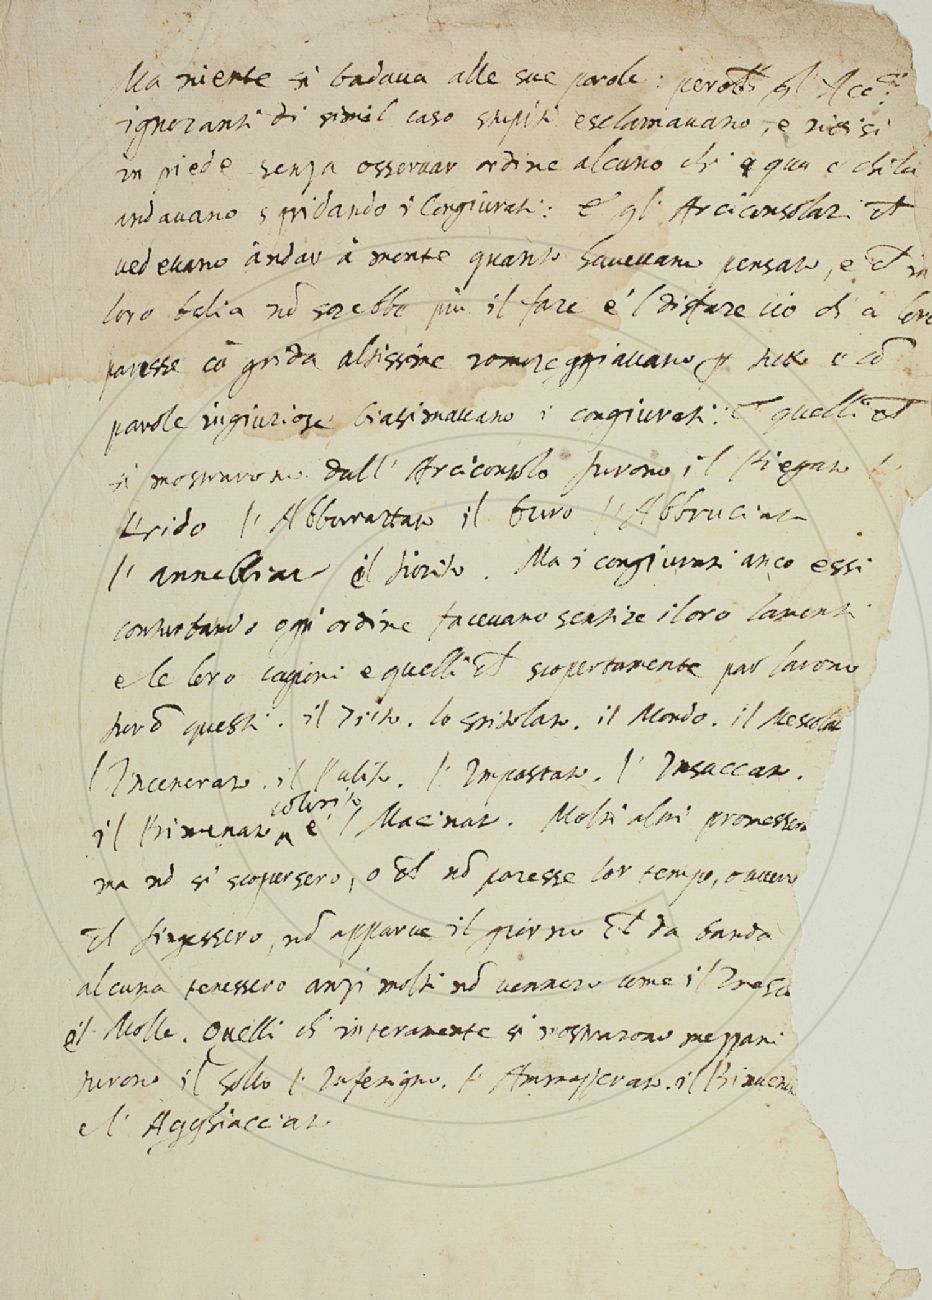 Ma niente si badaua alle sue parole: però ch̄ gl' Acc.ci
ignoranti di simil caso stupiti esclamauano, e rittisi
in piede senza osseruar ordine alcuno chi e qua e chi la
andauano sgridando i Congiurati: E gl' Arciconsolari ch̄
uedeuano andar à monte quanto haueuano pensato, e ch̄ in
loro balia nō sarebbe più il fare e 'l disfare ciò ch' à loro
paresse cō grida altissime romoreggiauano p tutto e cō
parole ingiuriose biasimauano i congiurati: E quelli ch̄
si mostrarono dall' Arciconsolo furono il Riegato l'
Arido l' Abburattato il Furo l' Abbruciato
l' annebbiato il fiorito. Ma i congiurati anco essi
conturbando ogni ordine faceuano sentire i loro lamenti
e le loro cagioni e quelli ch̄ scopertamente parlarono
furō questi. il Trito. lo Spitolato. il Mondo. il Mescolato
l' Incenerato. il Pulito. l' Impastato. l' Insaccato.
il Rimenato colorito e 'l Macinato. Molti altri promessero
ma nō si scopersero, o ch̄ nō paresse lor tempo, o auero
ch̄ fingessero, nō apparue il giorno ch̄ da banda
alcuna tenessero anzi molti nō uennero come il
e 'l Molle. Quelli ch' interamente si mostrarono mezzani
furono il Sollo l' Inferigno. l' Ammazzerato. il Rimenato
e l' Agghiacciato